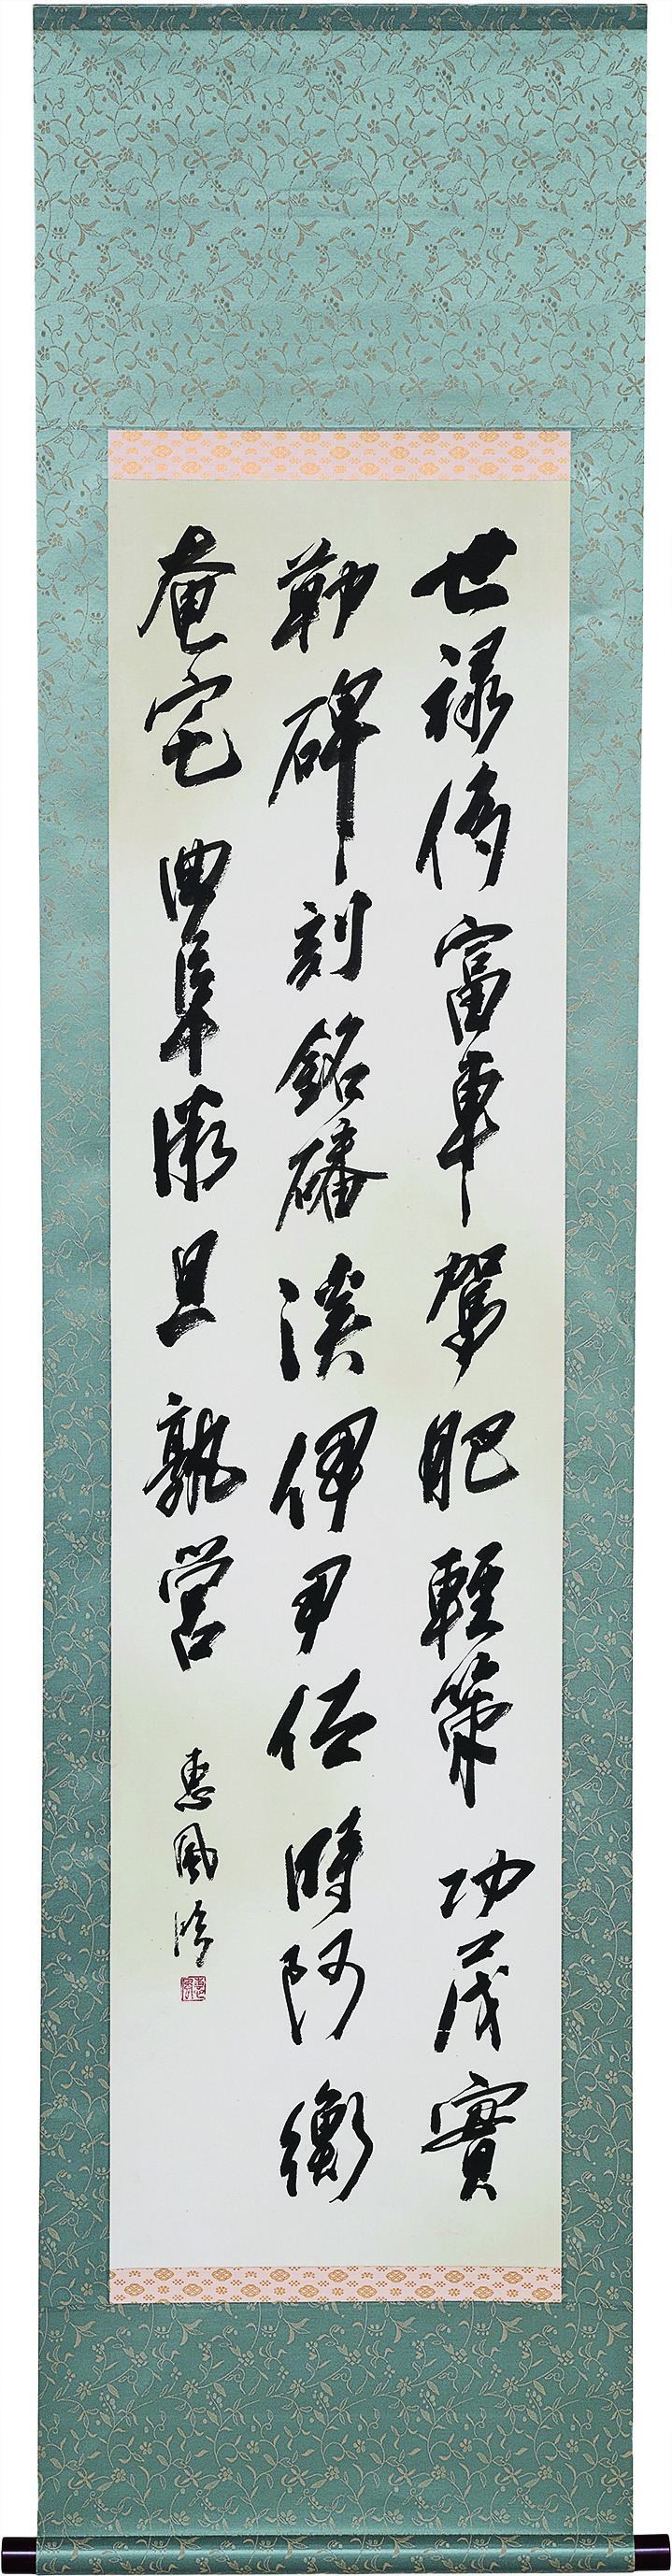 世禄侈富車駕肥輕策功茂實
勒碑刻銘磻溪伊尹佐時阿衡
奄宅曲阜微旦孰営
恵風